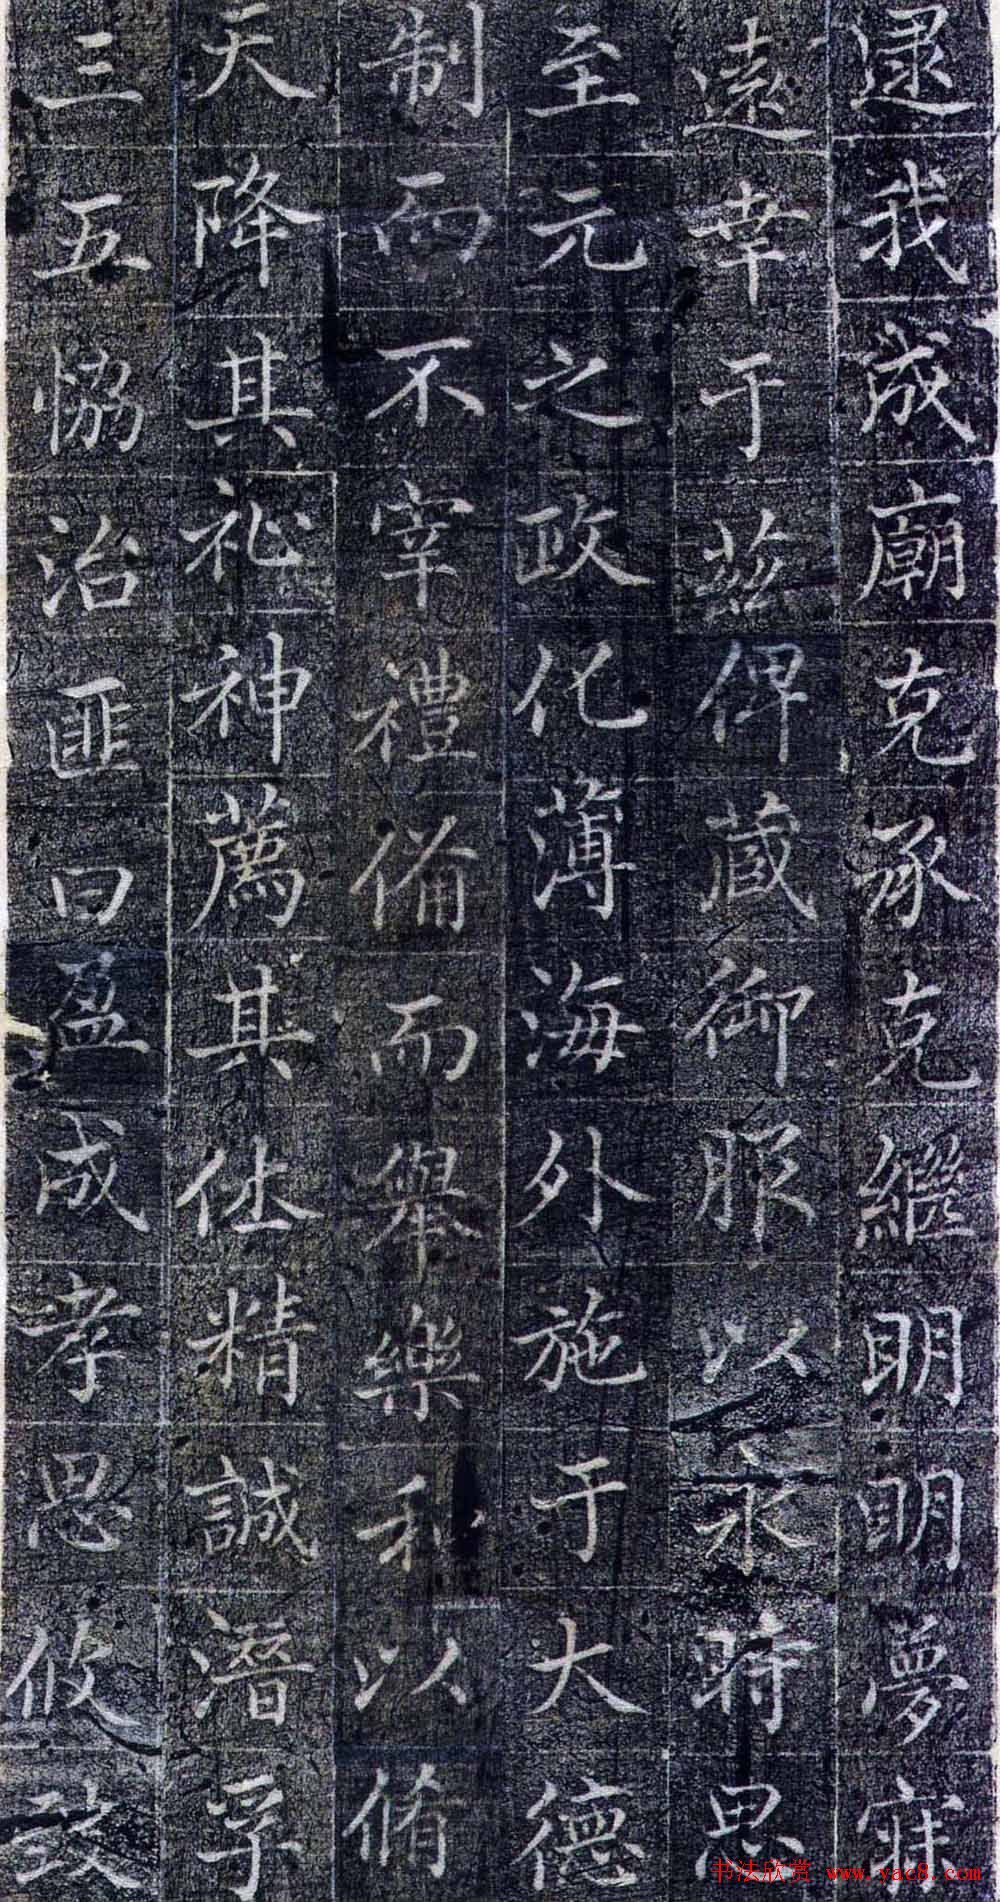 逯我成廟克承克繼明明夢寐
遠幸于茲俾藏御服以永時思
至元之政化薄海外施于大德
制而不宰禮備而舉樂和以脩
天降其祉神薦其休精誠潛孚
三五恊治匪曰盈成孝思攸致
书法欣赏 www.yac8.com